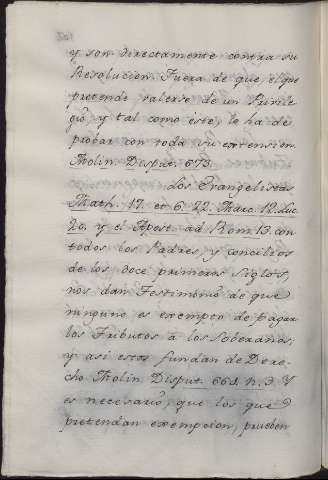 y son directamente contra su
Resolucion. Fuera de que, el que
pretende valerse de un Privile-
gio, y tal como este, le ha de
probar con toda su extension.
Molin. Disput. 673.
Los Evangelistas
Math. 17. et 6. 22. Marc. 12. Luc.
20. y el Apost. ad Rom. 13. con
todos los Padres, y concilios
de los doce primeros siglos,
nos dan Testimonio de que
ninguno es exempto de pagar
los Tributos a los Soberanos;
y asi estos fundan de Dere-
cho Molin. Disput. 661. n. 3. Y
es necesario, que los que
pretendan exempcion, prueben